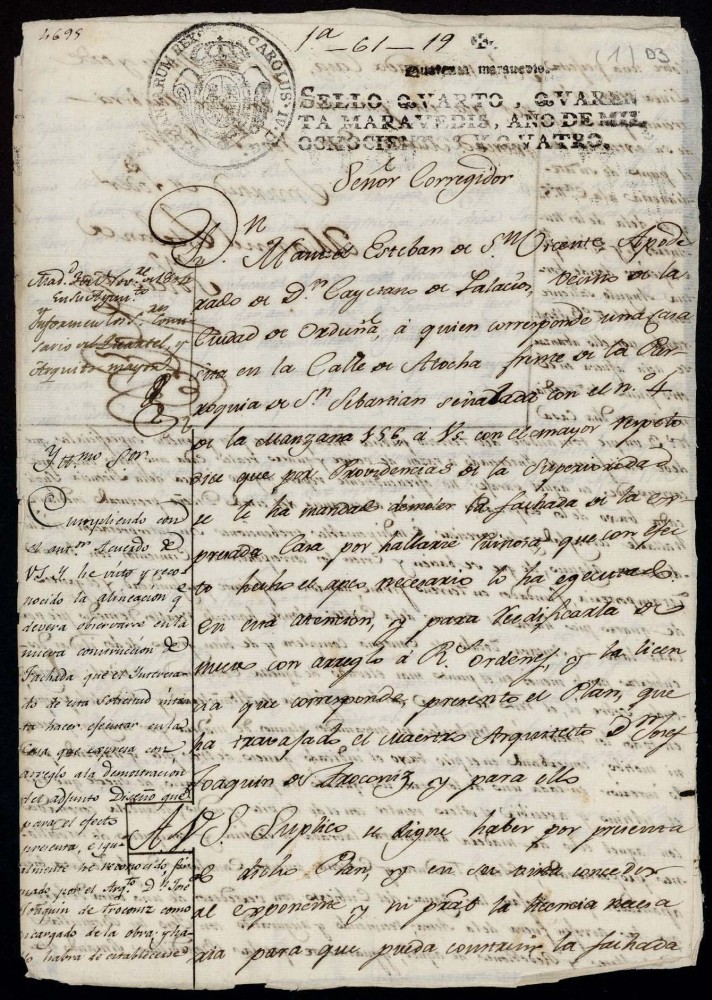 4695
1ª-61-19
(1) 03
Quarenta maravedis.
CAROLUS IV D. G. HISPANIARUM REX
SELLO QVARTO, QVAREN
TA MARAVEDIS, AÑO DE MIL
OCHOCIENTOS Y QVATRO.
Señor Corregidor
Dn. Manuel Esteban de Sn. Vicente Apode
rado de Dn. Cayetano de Palacio, Vecino de la
Ciudad de Orduña, á quien corresponde una Casa
sita en la Calle de Atocha frente de la Par
roquia de Sn. Sebastian señalada con el nº. 4
de la Manzana 156, á VS. con el mayor respeto
dice que por Providencias de la Superioridad
se le ha mandado demoler la fachada de la ex
presada Casa por hallarse Ruinosa, que con efec
to hecho el apeo necesario lo ha egecutado
en esta atención, y para Reedificarla de
nuevo con arreglo á Rs. Ordenes, y la licen
cia que corresponde, presento el Plan, que
ha travajado el Maestro Arquitecto Dn. Josef
Joaquin de Troconiz, y para ello
A VS. Suplico se digne haber por presenta
do dicho Plan, y en su vista conceder
al exponente y mi la licencia necesa
ria para que pueda construir la fachada
En su Ayunto.
Informen los Sres. Comi
sario de Quartel, y
Arquitto. mayor
Ylltmo. Sor.
Cumpliendo con
el antr. Acuerdo de
VS. Y. he visto y reco
nocido la alineacion q
devera observarse en la
nueva construccion de
Fachada que el Interesa
do de esta solicitud inten
ta hacer ejecutar en la
Casa que expresa con
arreglo a la demostracion
del adjunto Diseño que
para el efecto
presenta, e igu
almente he reconocido fir
mado por el Arqto. Dn. José
Joaquin de Troconiz como
encargado de la obra; y ha
lo habra de establecerse